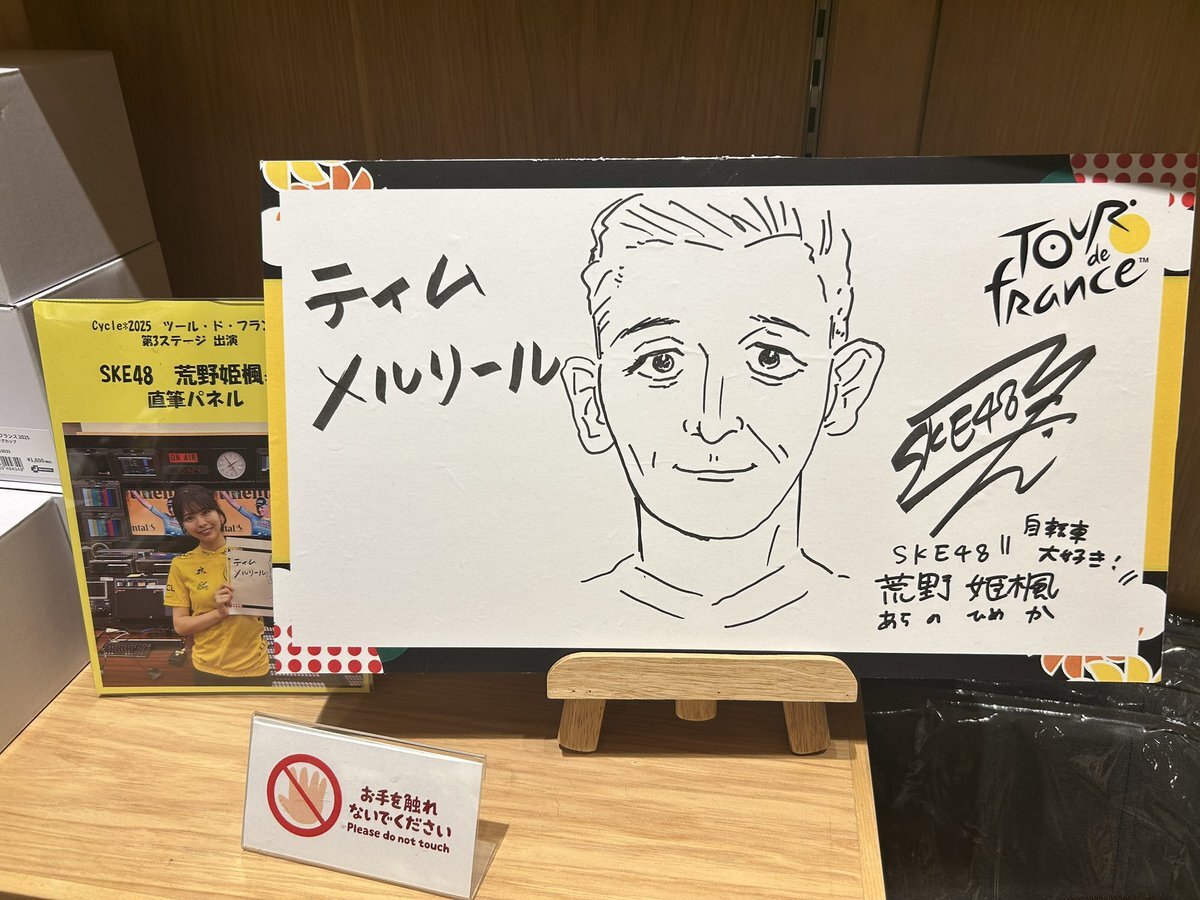 ティム
メルリール
TOUR
de
france™
SKE48
自転車
大好き!
SKE48
荒野 姫楓
あらの ひめか
Cycle*2025 ツール・ド・フラン
第3ステージ 出演
SKE48 荒野姫楓
直筆パネル
ON AIR
ティム
メルリール
フランス2025
¥1,650
お手を触れ
ないでください
Please do not touch